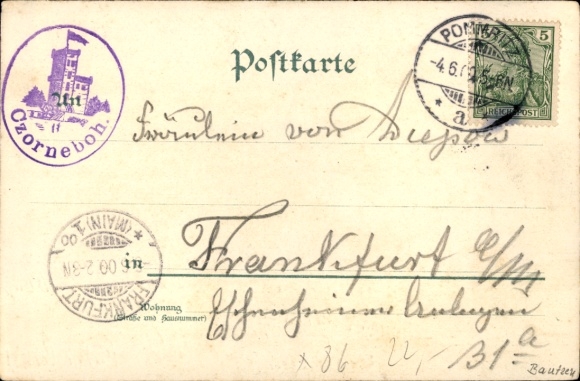 Postkarte
POMMRITZ
-4.6.0
5-6N
* a
5
REICHSPOST
An
Czorneboh.
Fräulein von
in Frankfurt a/M
FRANKFURT
6.00.2-3N
* (MAIN) 1
Wohnung
(Straße und Hausnummer)
Eschenheimer Anlagen
31a
x 86 22,-
Bautzen